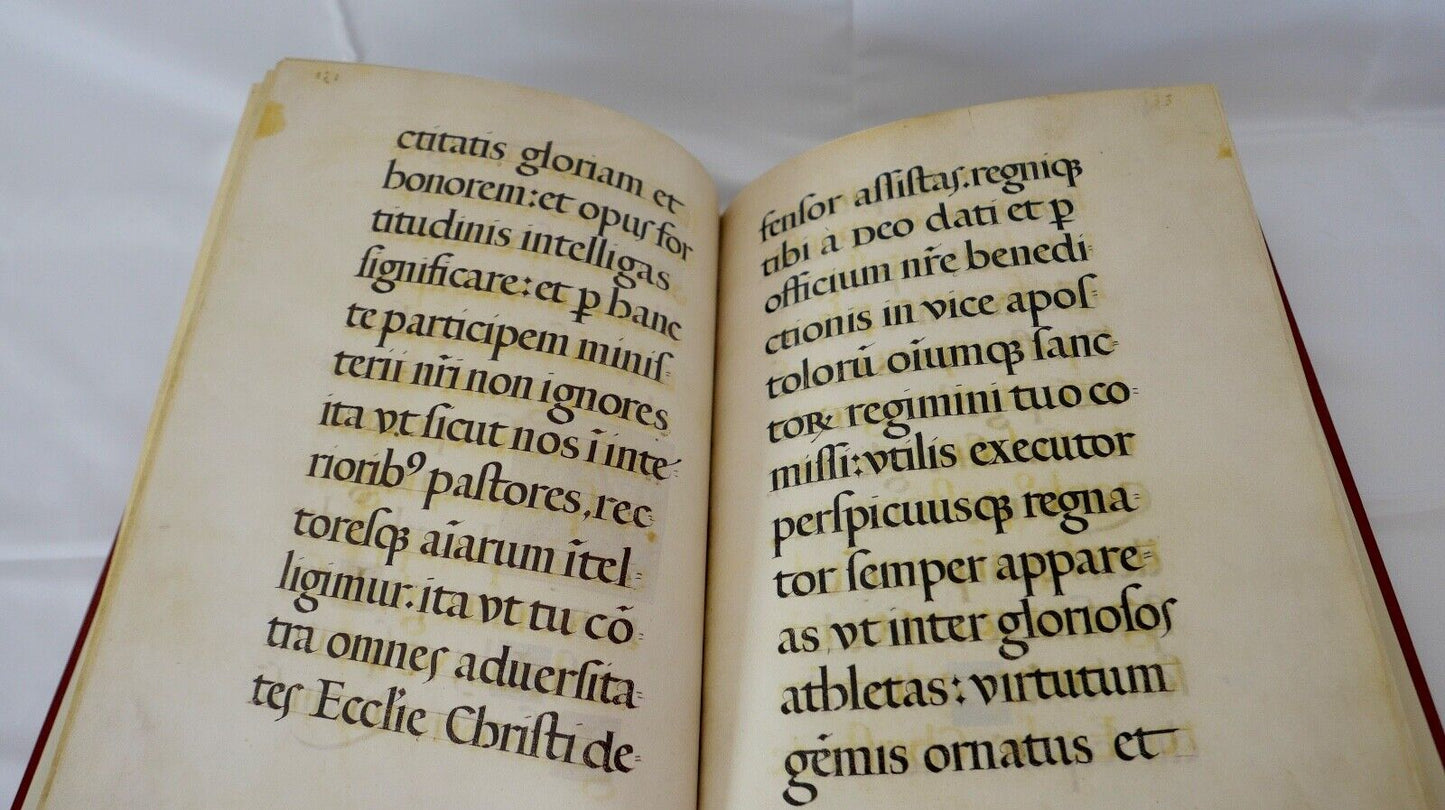 ctitatis gloriam et
honorem: et opus for
titudinis intelligas
significare: et ꝑ hanc
te participem minis=
terii nr̄i non ignores
ita vt sicut nos ī inte=
riorib⁹ pastores, rec=
toresqꝫ aīarum ītel=
ligimur: ita vt tu cō=
tra omnes aduersita=
tes Ecclīe Christi de=
fensor assistas. regniqꝫ
tibi à Deo dati et ꝑ
officium nr̄e benedi=
ctionis in vice apos=
tolorū oīumqꝫ sanc=
toꝝ regimini tuo co=
missi: vtilis executor
perspicuusqꝫ regna=
tor semper appare=
as vt inter gloriosos
athletas: virtutum
gēmis ornatus et